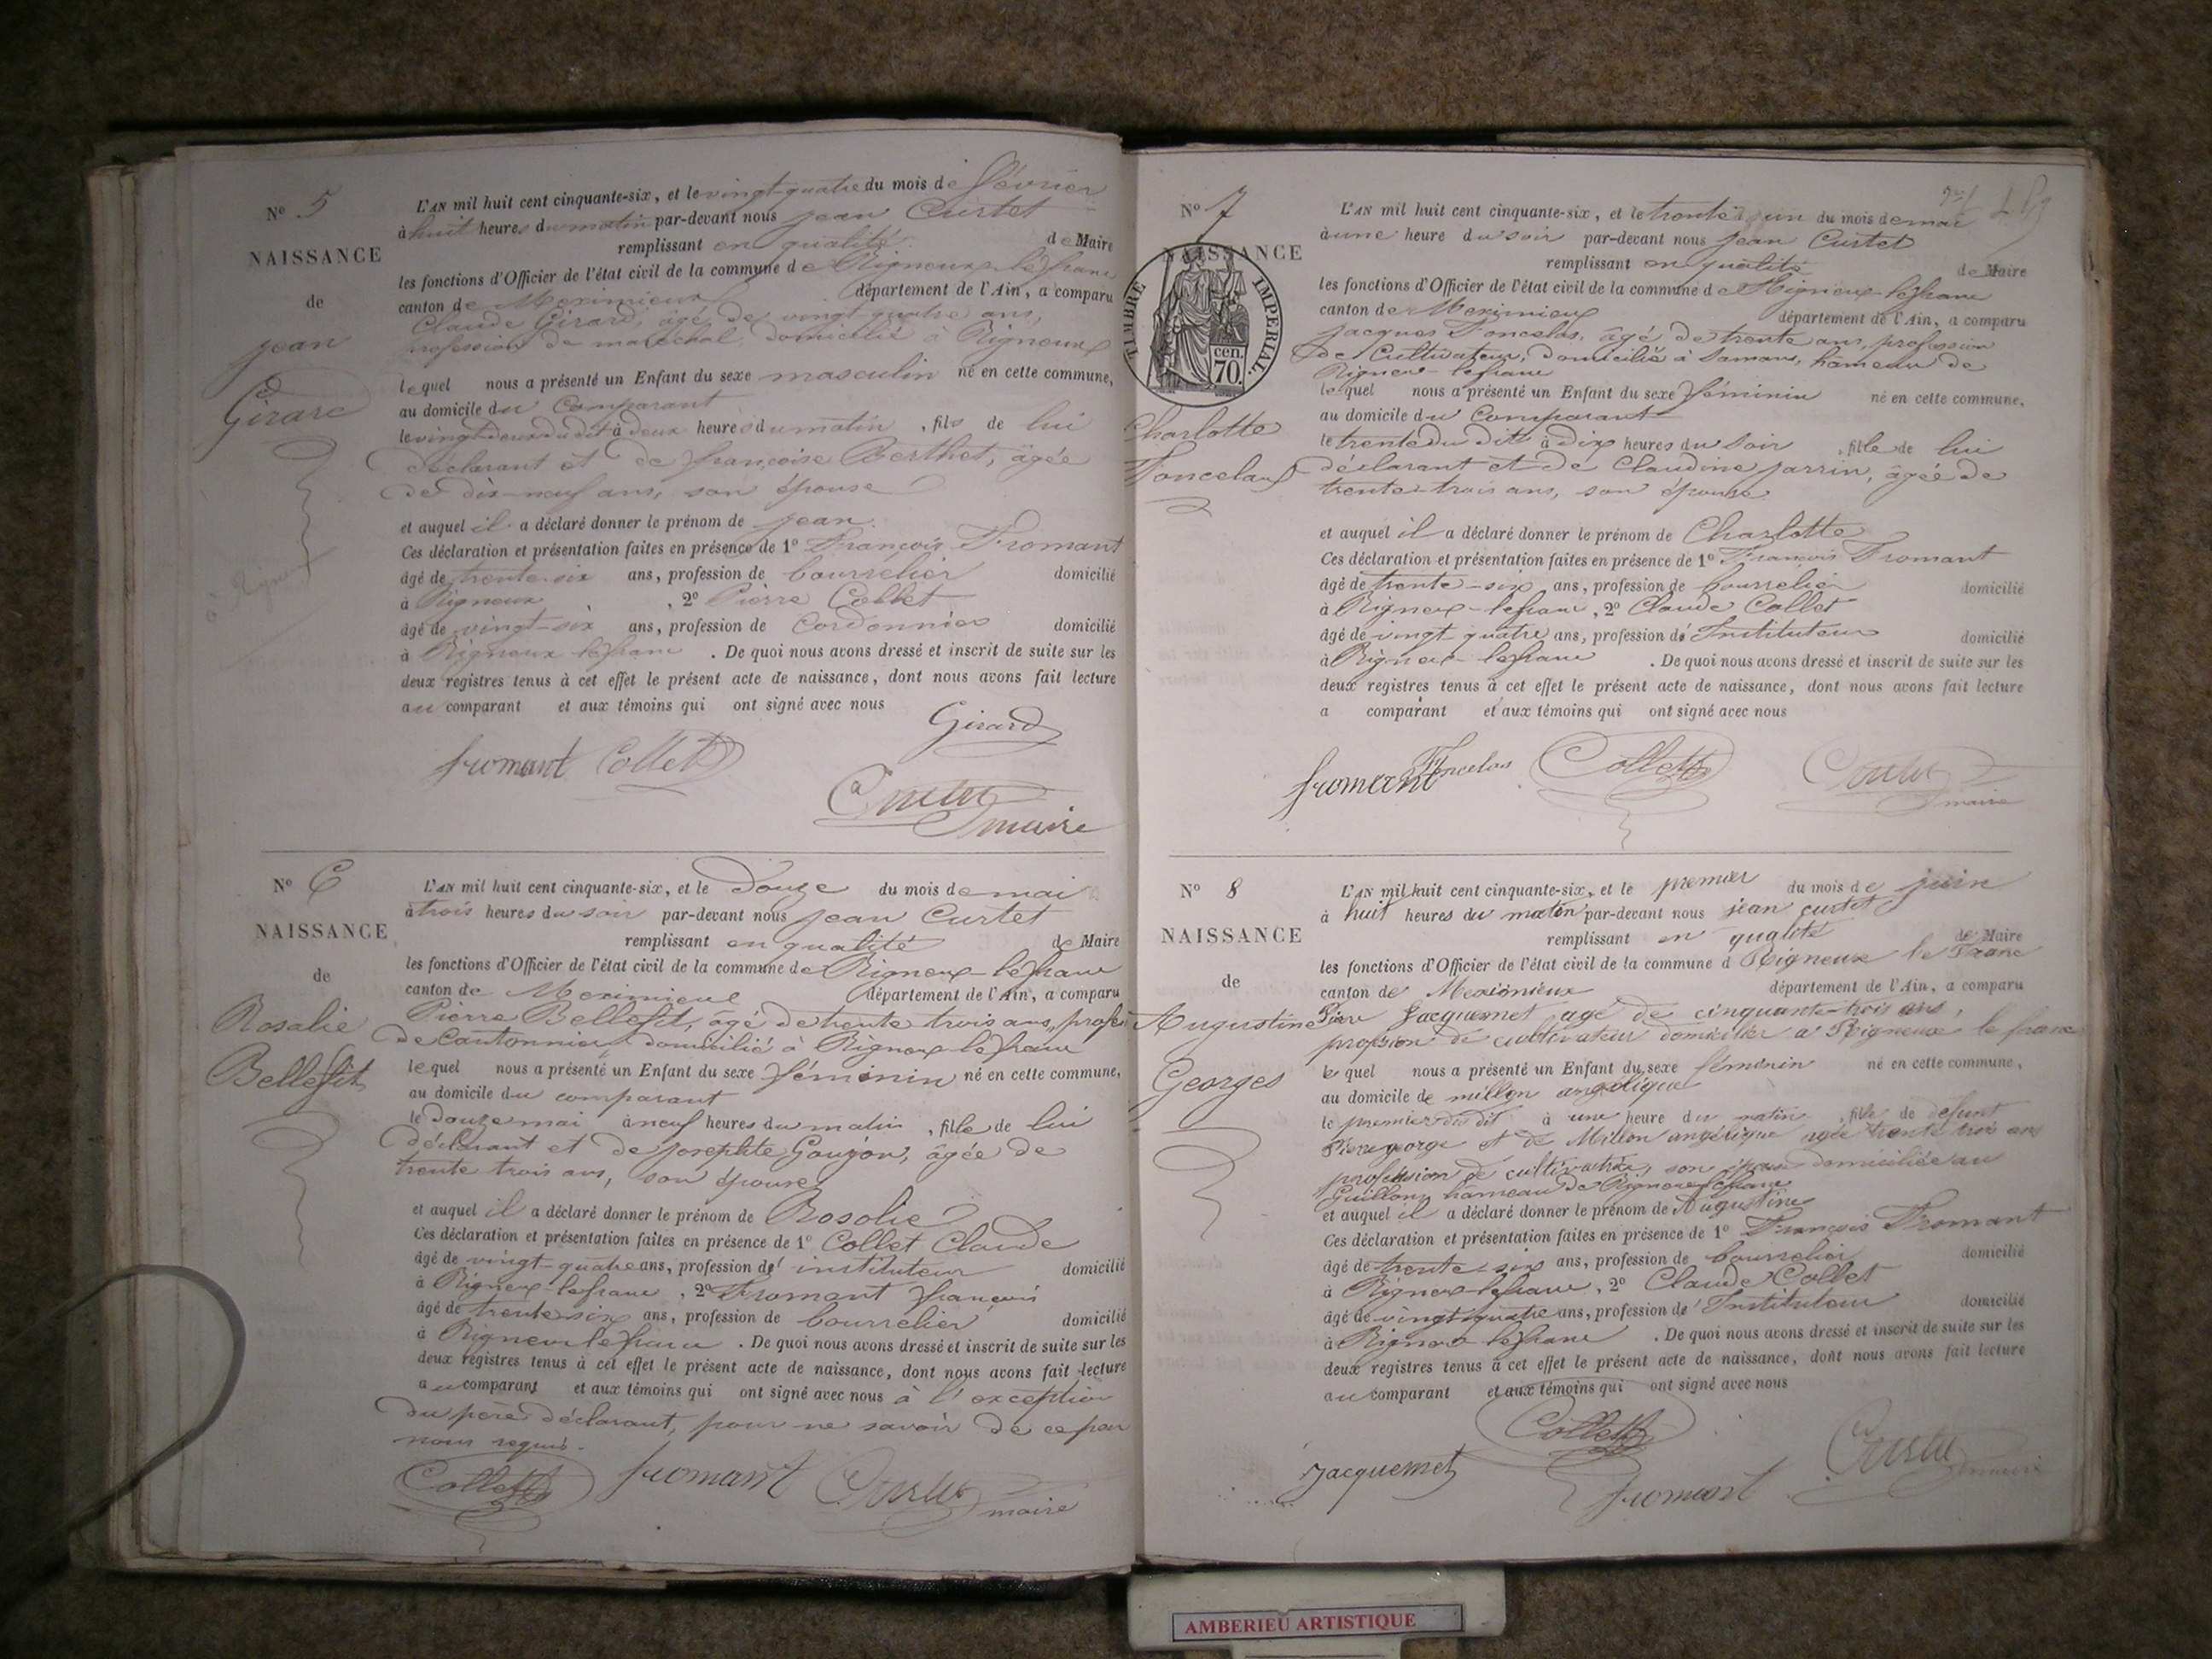 N° 5
NAISSANCE
de
jean
Girard
L'AN mil huit cent cinquante-six, et le vingt-quatre du mois de février
à huit heures du matin par-devant nous jean Curtet
remplissant en qualité de Maire
les fonctions d'Officier de l'état civil de la commune de Rigneux-lefranc
canton de Meximieux département de l'Ain, a comparu
Claude Girard, âgé de vingt quatre ans,
profession de maréchal, domicilié à Rigneux
lequel nous a présenté un Enfant du sexe masculin né en cette commune,
au domicile du Comparant
le vingt-deux du dit à deux heures du matin, fils de lui
déclarant et de françoise Berthet, âgée
de dix-neuf ans, son épouse
et auquel il a déclaré donner le prénom de jean.
Ces déclaration et présentation faites en présence de 1° François Fromant
âgé de trente-six ans, profession de bourrelier domicilié
à Rigneux, 2° Pierre Collet
âgé de vingt-six ans, profession de Cordonnier domicilié
à Rigneux lefranc. De quoi nous avons dressé et inscrit de suite sur les
deux registres tenus à cet effet le présent acte de naissance, dont nous avons fait lecture
au comparant et aux témoins qui ont signé avec nous
Girard
fromant Collet
Curtet
maire
N° 6
NAISSANCE
de
Rosalie
Bellefit
L'AN mil huit cent cinquante-six, et le Douze du mois de mai
à trois heures du soir par-devant nous jean Curtet
remplissant en qualité de Maire
les fonctions d'Officier de l'état civil de la commune de Rigneux-lefranc
canton de Meximieux département de l'Ain, a comparu
Pierre Bellefit, âgé de trente trois ans, profes
de Cantonnier domicilié à Rigneux-lefranc
lequel nous a présenté un Enfant du sexe féminin né en cette commune,
au domicile du comparant
le douze mai à neuf heures du matin, fille de lui
déclarant et de josephte Goujon, âgée de
trente trois ans, son épouse
et auquel il a déclaré donner le prénom de Rosolie
Ces déclaration et présentation faites en présence de 1° Collet Claude
âgé de vingt-quatre ans, profession d' instituteur domicilié
à Rigneux-lefranc, 2° Fromant françois
âgé de trente six ans, profession de bourrelier domicilié
à Rigneux lefranc. De quoi nous avons dressé et inscrit de suite sur les
deux registres tenus à cet effet le présent acte de naissance, dont nous avons fait lecture
au comparant et aux témoins qui ont signé avec nous à l'exception
du père déclarant, pour ne savoir de ce par
nous requis.
Collet fromant Curtet
maire
N° 7
NAISSANCE
TIMBRE IMPERIAL.
cen.
70.
Charlotte
Toncelas
L'AN mil huit cent cinquante-six, et le trente un du mois de mai
à une heure du soir par-devant nous jean Curtet
remplissant en qualité de Maire
les fonctions d'Officier de l'état civil de la commune de Rigneux-lefranc
canton de Meximieux département de l'Ain, a comparu
jacques Toncelas, âgé de trente ans, profession
de Cultivateur, domicilié à Samans, hameau de
Rigneux-lefranc
lequel nous a présenté un Enfant du sexe féminin né en cette commune,
au domicile du Comparant
le trente du dit à dix heures du soir, fille de lui
déclarant et de Claudine jarrin, âgée de
trente-trois ans, son épouse
et auquel il a déclaré donner le prénom de Charlotte
Ces déclaration et présentation faites en présence de 1° François Fromant
âgé de trente-six ans, profession de bourrelier domicilié
à Rigneux-lefranc, 2° Claude Collet
âgé de vingt quatre ans, profession d' Instituteur domicilié
à Rigneux-lefranc. De quoi nous avons dressé et inscrit de suite sur les
deux registres tenus à cet effet le présent acte de naissance, dont nous avons fait lecture
a comparant et aux témoins qui ont signé avec nous
fromant Toncelas Collet Curtet
maire
N° 8
NAISSANCE
de
Augustine
Georges
L'AN mil huit cent cinquante-six, et le premier du mois de juin
à huit heures du matin par-devant nous jean curtet
remplissant en qualité de Maire
les fonctions d'Officier de l'état civil de la commune d Rigneux le Franc
canton de Meximieux département de l'Ain, a comparu
Pierre Jacquemet agé de cinquante-trois ans,
profession de cultivateur domicilier a Rigneux le franc
lequel nous a présenté un Enfant du sexe féminin né en cette commune,
au domicile de millon angélique
le premier du dit à une heure du matin, fille de defunt
Pierre george et de Millon angélique agée trente trois ans
profession de cultivatrice, son épouse domiciliée au
Guillon, hameau de Rigneux-lefranc
et auquel il a déclaré donner le prénom de Augustine
Ces déclaration et présentation faites en présence de 1° François Fromant
âgé de trente-six ans, profession de bourrelier domicilié
à Rigneux-lefranc, 2° Claude Collet
âgé de vingt quatre ans, profession d' Instituteur domicilié
à Rigneux-lefranc. De quoi nous avons dressé et inscrit de suite sur les
deux registres tenus à cet effet le présent acte de naissance, dont nous avons fait lecture
au comparant et aux témoins qui ont signé avec nous
Collet
jacquemet fromant Curtet
maire
AMBERIEU ARTISTIQUE